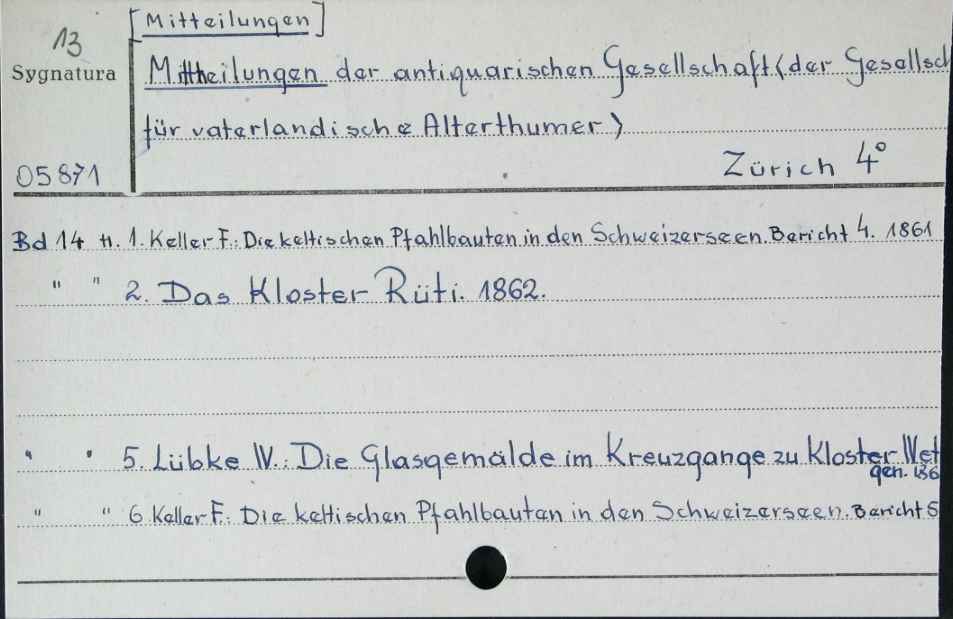 13
[Mitteilungen]
Sygnatura
Mittheilungen der antiquarischen Gesellschaft (der Gesellsch
für vaterlandische Alterthumer)
Zürich 4°
05871
Bd 14 H. 1. Keller F.: Die keltischen Pfahlbauten in den Schweizerseen. Bericht 4. 1861
" " 2. Das Kloster Rüti. 1862.
" " 5. Lübke W.: Die Glasgemälde im Kreuzgange zu Kloster Wet
gen. 186
" " 6 Keller F.: Die keltischen Pfahlbauten in den Schweizerseen. Bericht 5